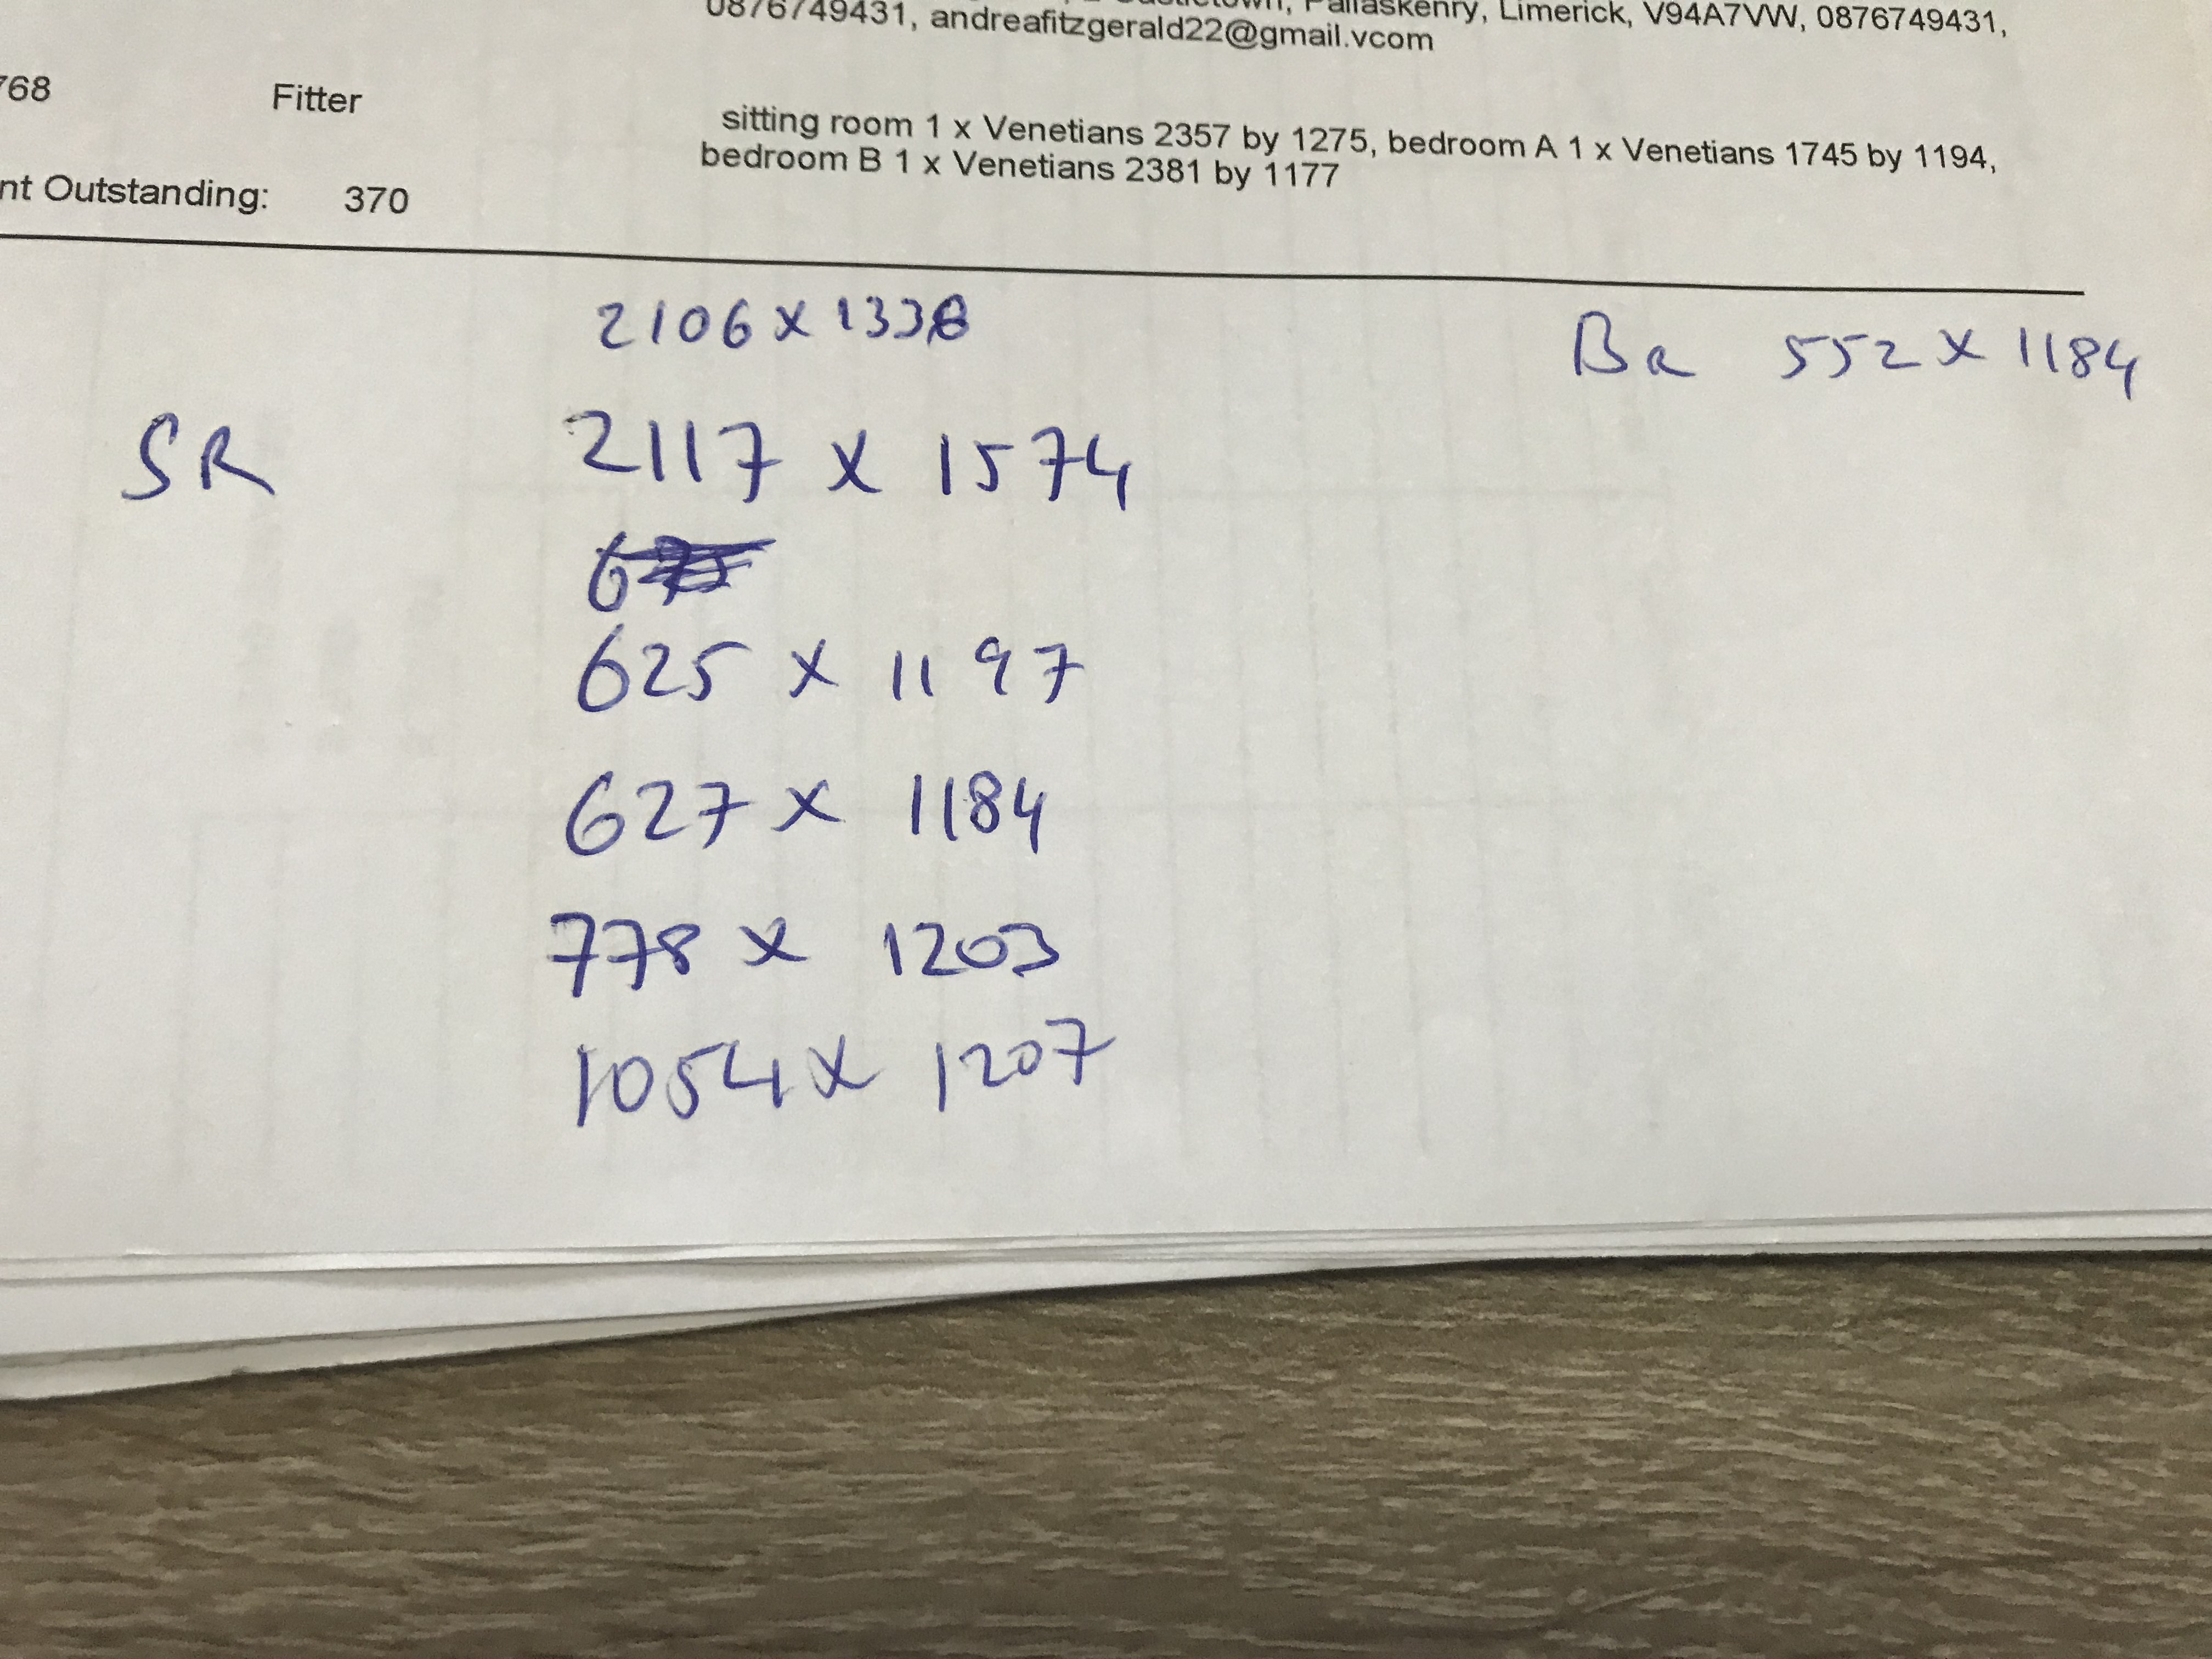 Pallaskenry, Limerick, V94A7VW, 0876749431,
0876749431, andreafitzgerald22@gmail.vcom
768 Fitter
sitting room 1 x Venetians 2357 by 1275, bedroom A 1 x Venetians 1745 by 1194,
bedroom B 1 x Venetians 2381 by 1177
nt Outstanding: 370
2106 x 1338
BR 552 x 1184
SR 2117 x 1574
625 x 1197
627 x 1184
778 x 1203
1054 x 1207